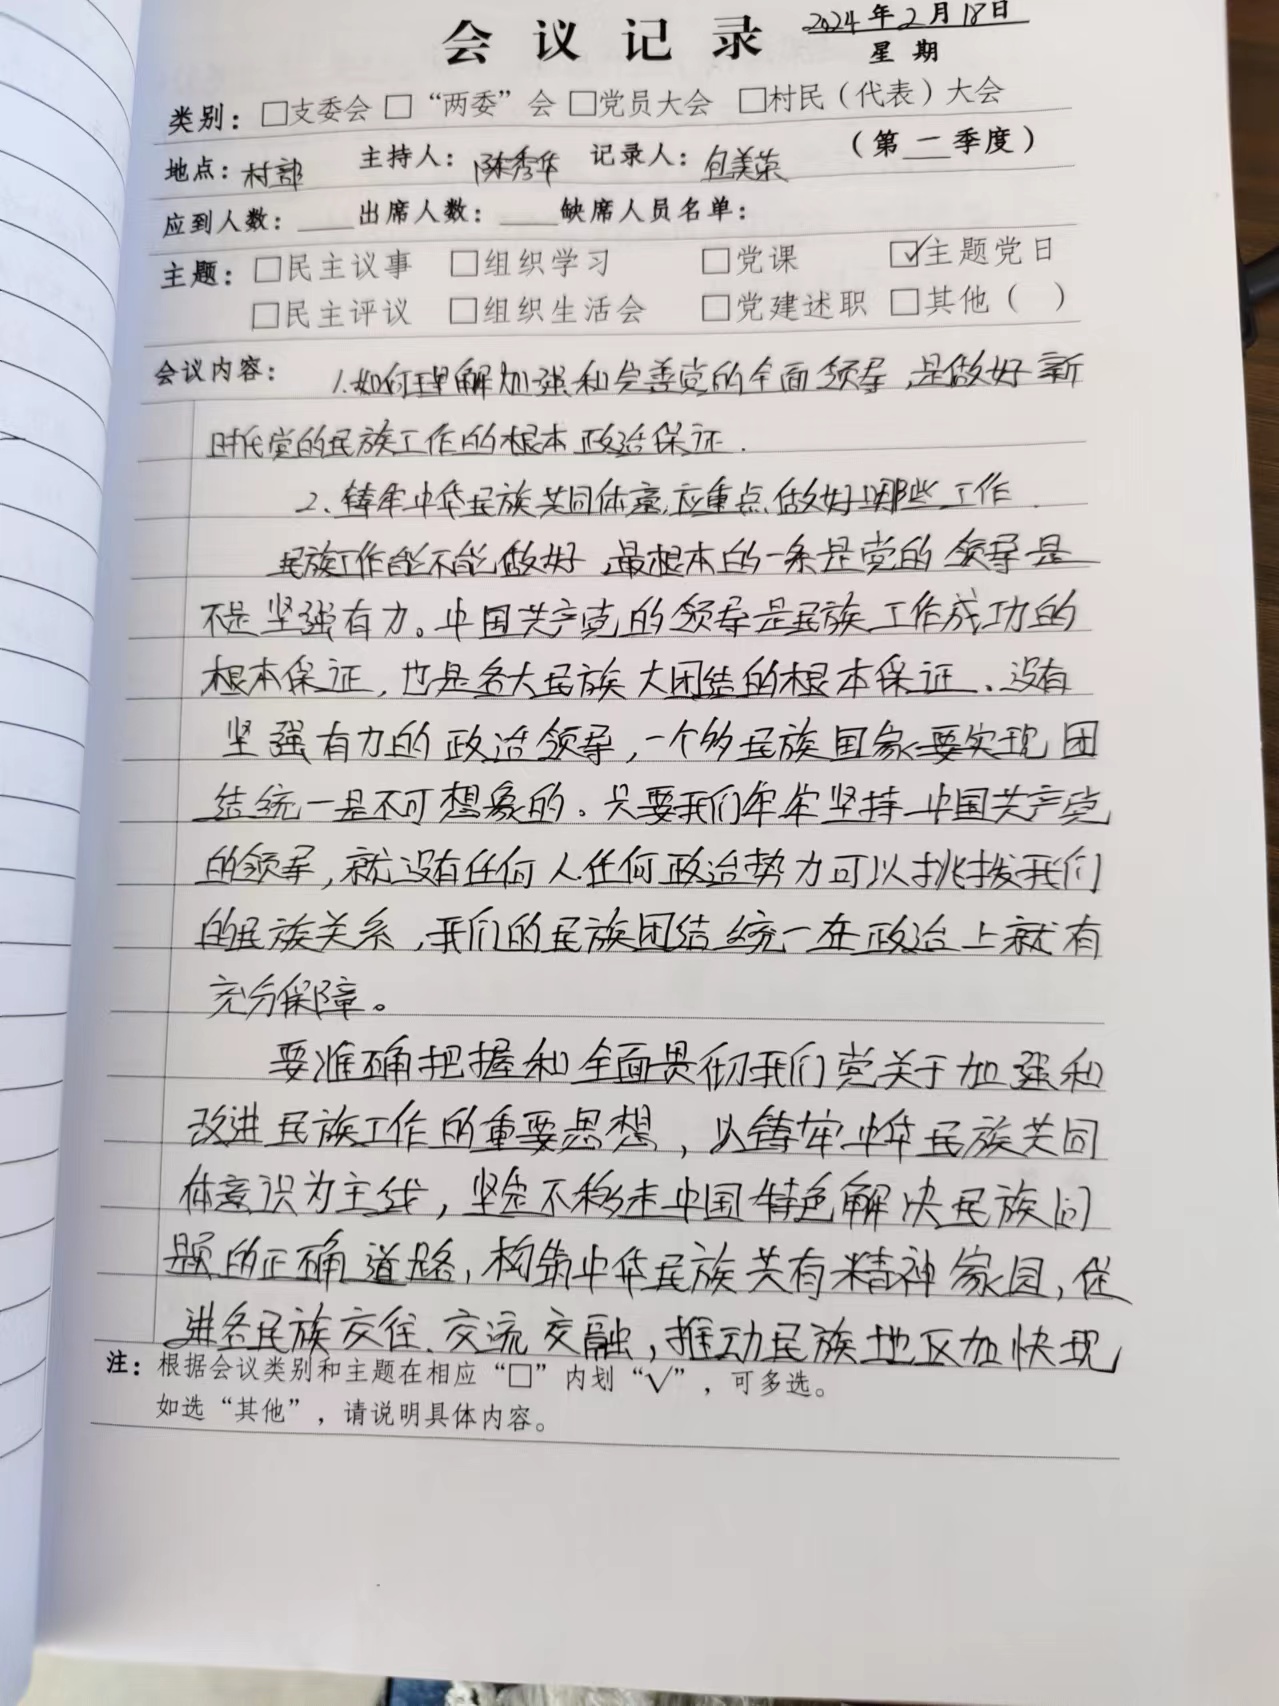 会议记录
2024年2月18日
星期
类别：□支委会 □“两委”会 □党员大会 □村民（代表）大会
地点：村部 主持人：陈秀华 记录人：包美荣 （第一季度）
应到人数：____出席人数：____缺席人员名单：
主题：□民主议事 □组织学习 □党课 ☑主题党日
□民主评议 □组织生活会 □党建述职 □其他（ ）
会议内容： 1.如何理解加强和完善党的全面领导，是做好新
时代党的民族工作的根本政治保证.
2、铸牢中华民族共同体意，应重点做好哪些工作.
民族工作能不能做好，最根本的一条是党的领导是
不是坚强有力。中国共产党的领导是民族工作成功的
根本保证，也是各大民族大团结的根本保证、没有
坚强有力的政治领导，一个多民族国家要实现团
结统一是不可想象的。只要我们牢牢坚持中国共产党
的领导，就没有任何人任何政治势力可以挑拨我们
的民族关系，我们的民族团结统一在政治上就有
充分保障。
要准确把握和全面贯彻我们党关于加强和
改进民族工作的重要思想，以铸牢中华民族共同
体意识为主线，坚定不移走中国特色解决民族问
题的正确道路，构筑中华民族共有精神家园，促
进各民族交往、交流交融，推动民族地区加快现
注：根据会议类别和主题在相应“□”内划“√”，可多选。
如选“其他”，请说明具体内容。